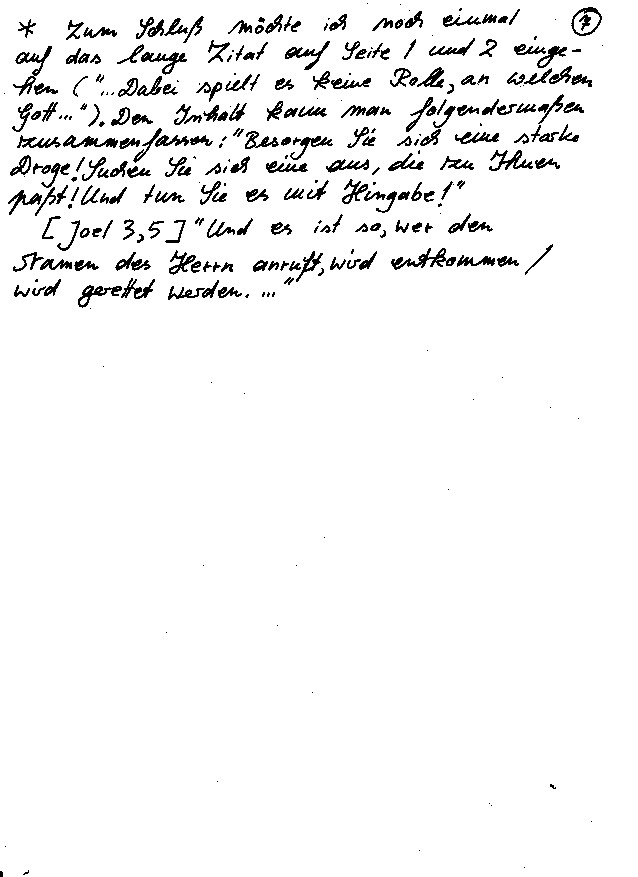 * Zum Schluß möchte ich noch einmal ⑦
auf das lange Zitat auf Seite 1 und 2 einge-
hen ("...Dabei spielt es keine Rolle, an welchen
Gott..."). Den Inhalt kann man folgendermaßen
zusammenfassen: "Besorgen Sie sich eine starke
Droge! Suchen Sie sich eine aus, die zu Ihnen
paßt! Und tun Sie es mit Hingabe!"
[Joel 3,5] "Und es ist so, wer den
Namen des Herrn anruft, wird entkommen /
wird gerettet werden. ..."